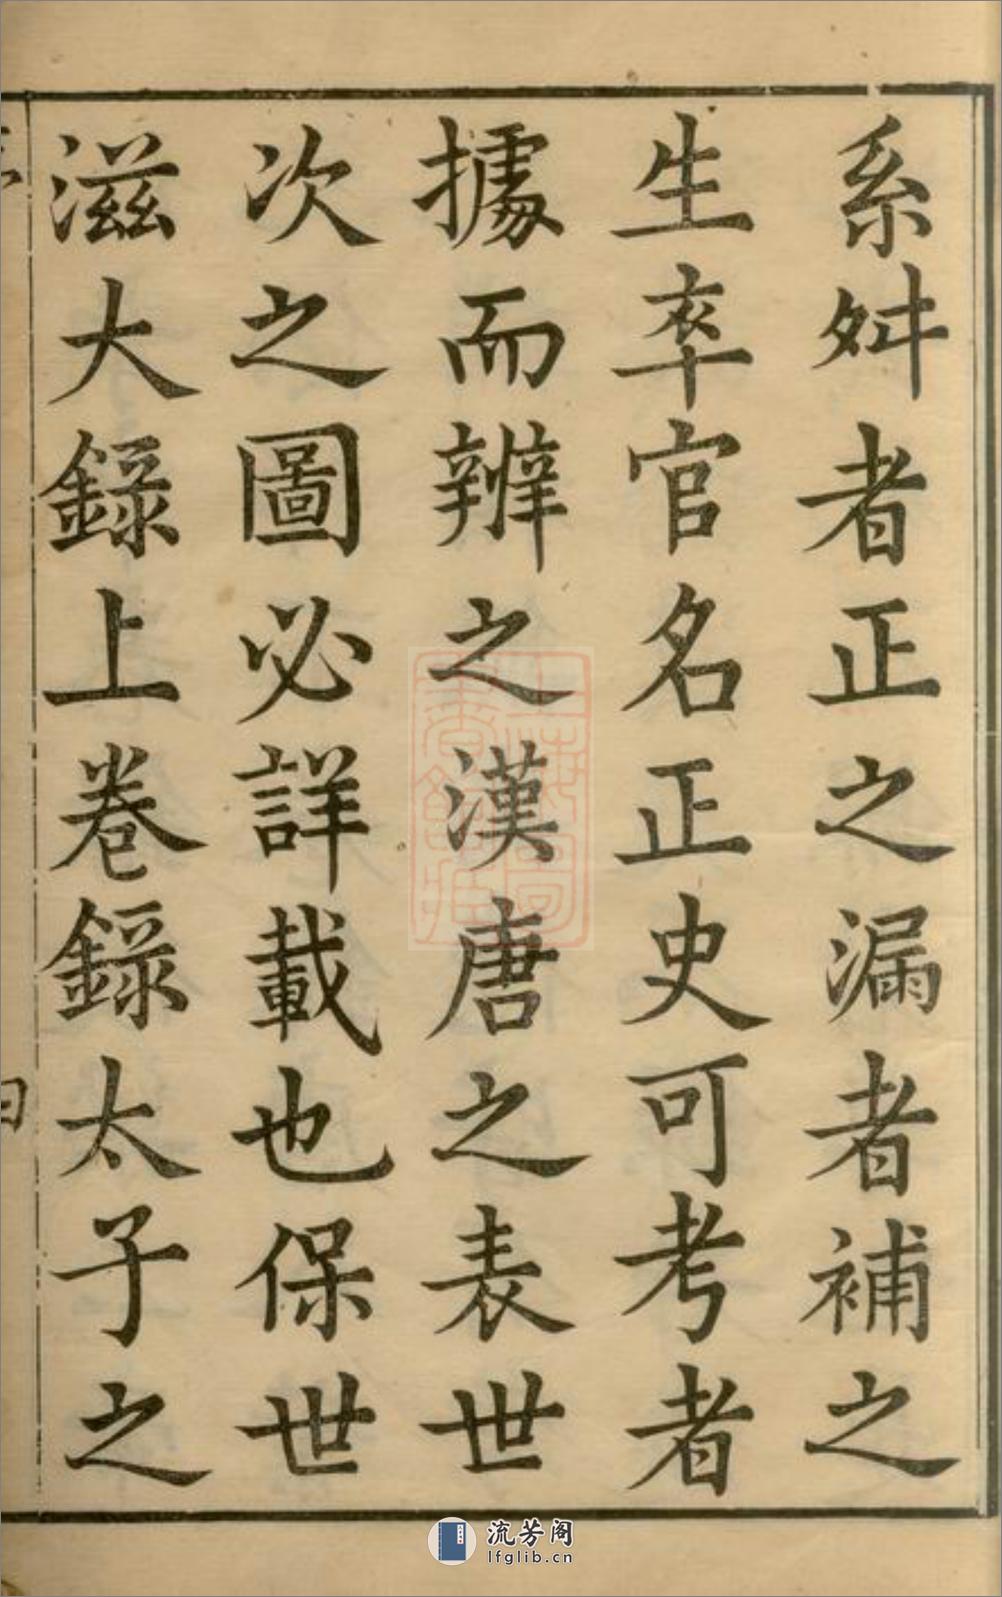 系舛者正之漏者補之
生卒官名正史可考者
據而辨之漢唐之表世
次之圖必詳載也保世
滋大錄上卷錄太子之
流芳阁
lfglib.cn